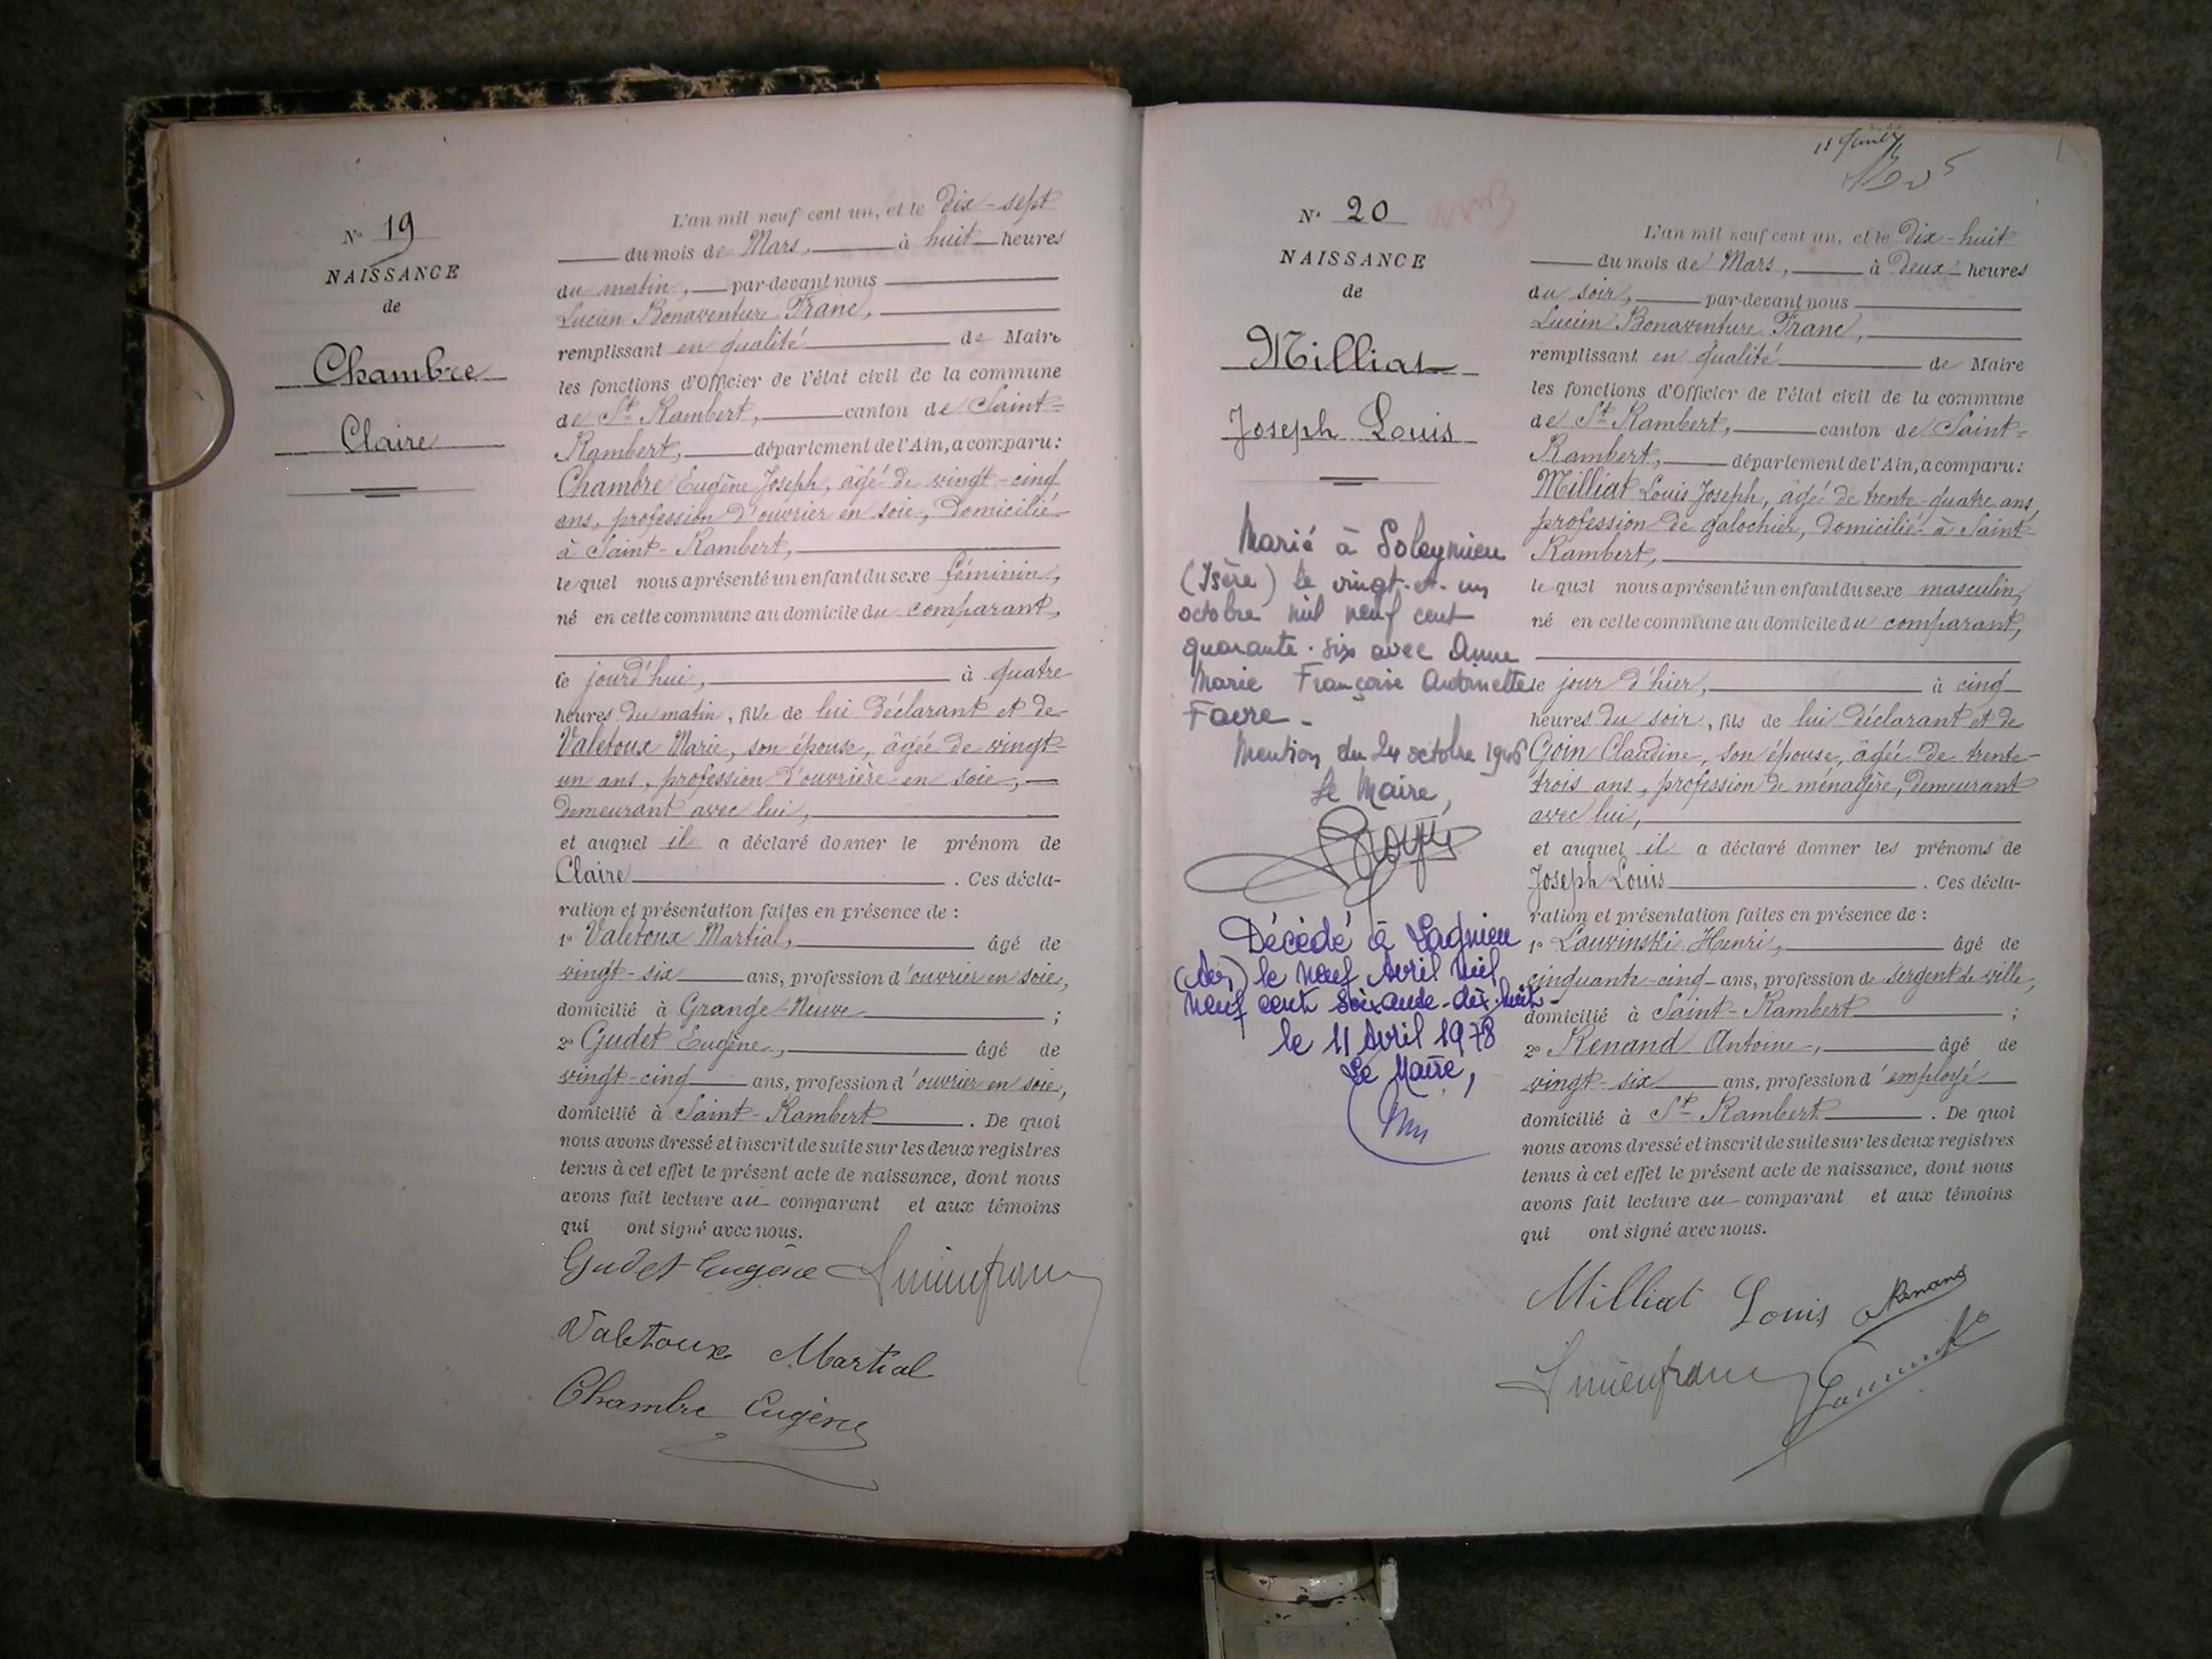 N° 19
NAISSANCE
de
Chambre
Claire
L'an mil neuf cent un, et le Dix-sept
du mois de Mars, à huit heures
du matin, par-devant nous
Lucien Bonaventure Franc,
remplissant en qualité de Maire
les fonctions d'Officier de l'état civil de la commune
de St Rambert, canton de Saint-
Rambert, département de l'Ain, a comparu:
Chambre Eugène Joseph, âgé de vingt-cinq
ans, profession d'ouvrier en soie, domicilié
à Saint-Rambert,
le quel nous a présenté un enfant du sexe féminin,
né en cette commune au domicile du comparant,
ce jourd'hui, à quatre
heures du matin, fille de lui déclarant et de
Valetoux Marie, son épouse, âgée de vingt-
un ans, profession d'ouvrière en soie,
demeurant avec lui,
et auquel il a déclaré donner le prénom de
Claire. Ces décla-
ration et présentation faites en présence de:
1° Valetoux Martial, âgé de
vingt-six ans, profession d'ouvrier en soie,
domicilié à Grange-Neuve;
2° Gudet Eugène, âgé de
vingt-cinq ans, profession d'ouvrier en soie,
domicilié à Saint-Rambert. De quoi
nous avons dressé et inscrit de suite sur les deux registres
tenus à cet effet le présent acte de naissance, dont nous
avons fait lecture au comparant et aux témoins
qui ont signé avec nous.
Gudet Eugène
Valetoux Martial
Chambre Eugène
N° 20
NAISSANCE
de
Milliat
Joseph Louis
Marié à Soleymieu
(Isère) le vingt-et-un
octobre mil neuf cent
quarante-six avec Anne
Marie Françoise Antoinette
Favre.
Mention du 24 octobre 1946
Le Maire,
Décédé à Lagnieu
(Ain) le neuf Avril mil
neuf cent soixante-dix-huit
le 11 Avril 1978
Le Maire,
L'an mil neuf cent un, et le Dix-huit
du mois de Mars, à Deux heures
du soir, par-devant nous
Lucien Bonaventure Franc,
remplissant en qualité de Maire
les fonctions d'Officier de l'état civil de la commune
de St Rambert, canton de Saint-
Rambert, département de l'Ain, a comparu:
Milliat Louis Joseph, âgé de trente-quatre ans,
profession de galochier, domicilié à Saint-
Rambert,
le quel nous a présenté un enfant du sexe masculin,
né en cette commune au domicile du comparant,
le jour d'hier, à cinq
heures du soir, fils de lui déclarant et de
Goin Claudine, son épouse, âgée de trente-
trois ans, profession de ménagère, demeurant
avec lui,
et auquel il a déclaré donner les prénoms de
Joseph Louis. Ces décla-
ration et présentation faites en présence de:
1° Lauwinski Henri, âgé de
cinquante-cinq ans, profession de sergent de ville,
domicilié à Saint-Rambert;
2° Renand Antoine, âgé de
vingt-six ans, profession d'employé
domicilié à St Rambert. De quoi
nous avons dressé et inscrit de suite sur les deux registres
tenus à cet effet le présent acte de naissance, dont nous
avons fait lecture au comparant et aux témoins
qui ont signé avec nous.
Milliat Louis Renand